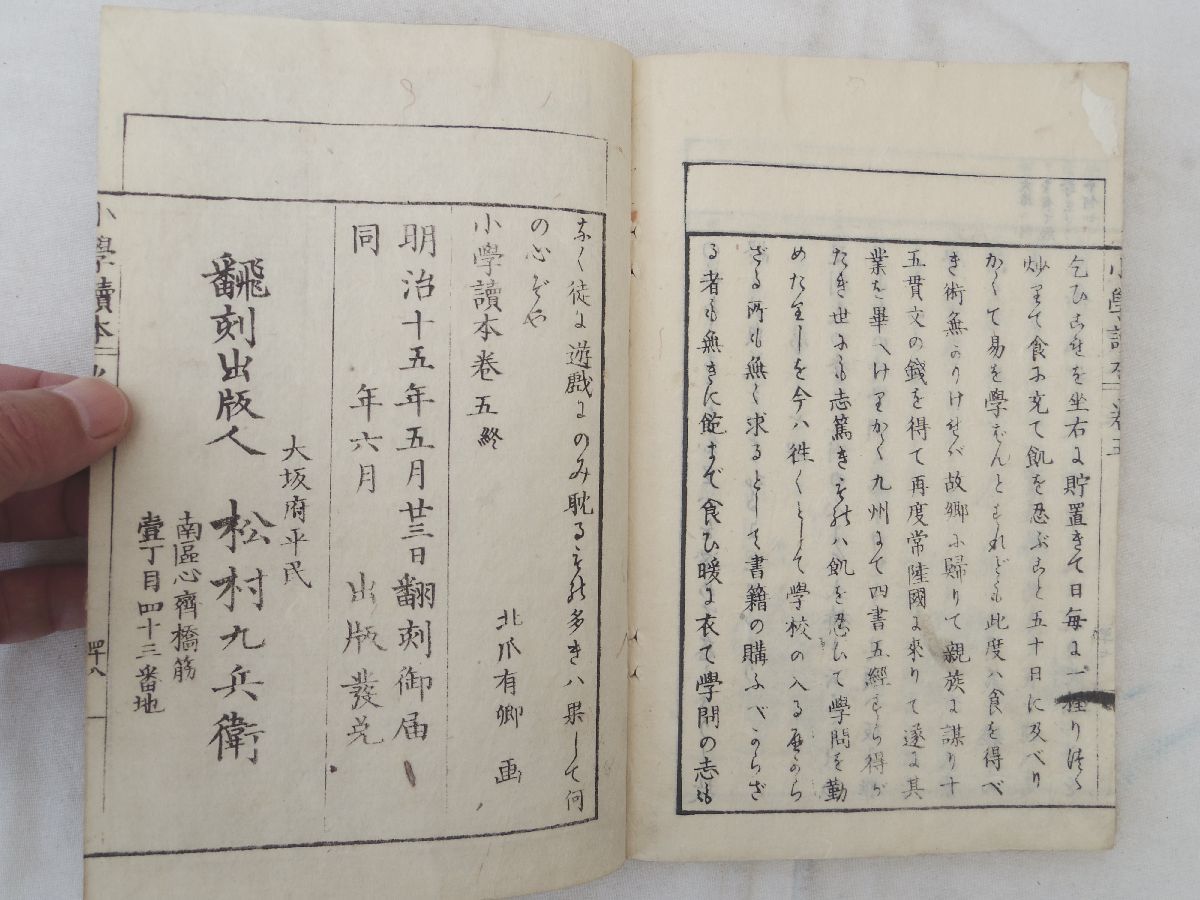 小學讀本 卷五
乞ひこれを坐右に貯置きて日毎に一種り渋ら
炒りて食に充て飢を忍ぶこと五十日に及べり
かくて易を學ばんとすれども此度ハ食を得べ
き術無かりけれバ故郷に歸りて親族に謀り十
五貫文の錢を得て再度常陸國に來りて遂に其
業を畢へけりかく九州にて四書五經すら得が
たき世にも志篤きものハ飢を忍びて學問を勤
めたりしを今ハ往くとして學校の入るべから
ざる所も無く求るとして書籍の購ふべからざ
る者も無きに飽まで食ひ暖に衣て學問の志も
なく徒に遊戲にのみ耽るもの多きハ果して何
の心ぞや
小學讀本卷五終
北爪有卿 画
明治十五年五月廿三日翻刻御届
同 年六月 出版發兌
大坂府平民
飜刻出版人 松村九兵衛
南區心齊橋筋
壹丁目四十三番地
小學讀本
四十八